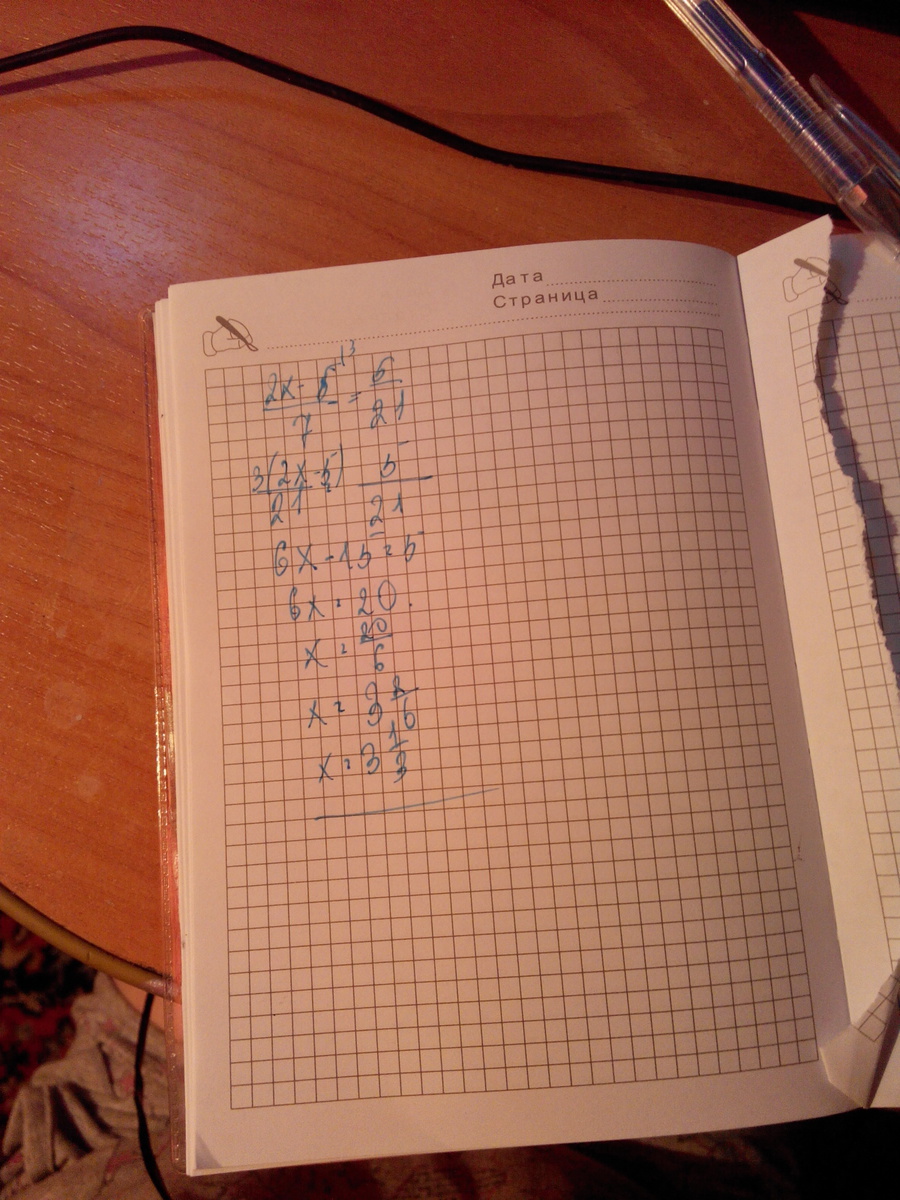 Дата
Страница
(2x - 5)/7 ^(3 = 5/21
3(2x-5)/21 = 5/21
6x - 15 = 5
6x = 20.
x = 20/6
x = 3 2/6
x = 3 1/3